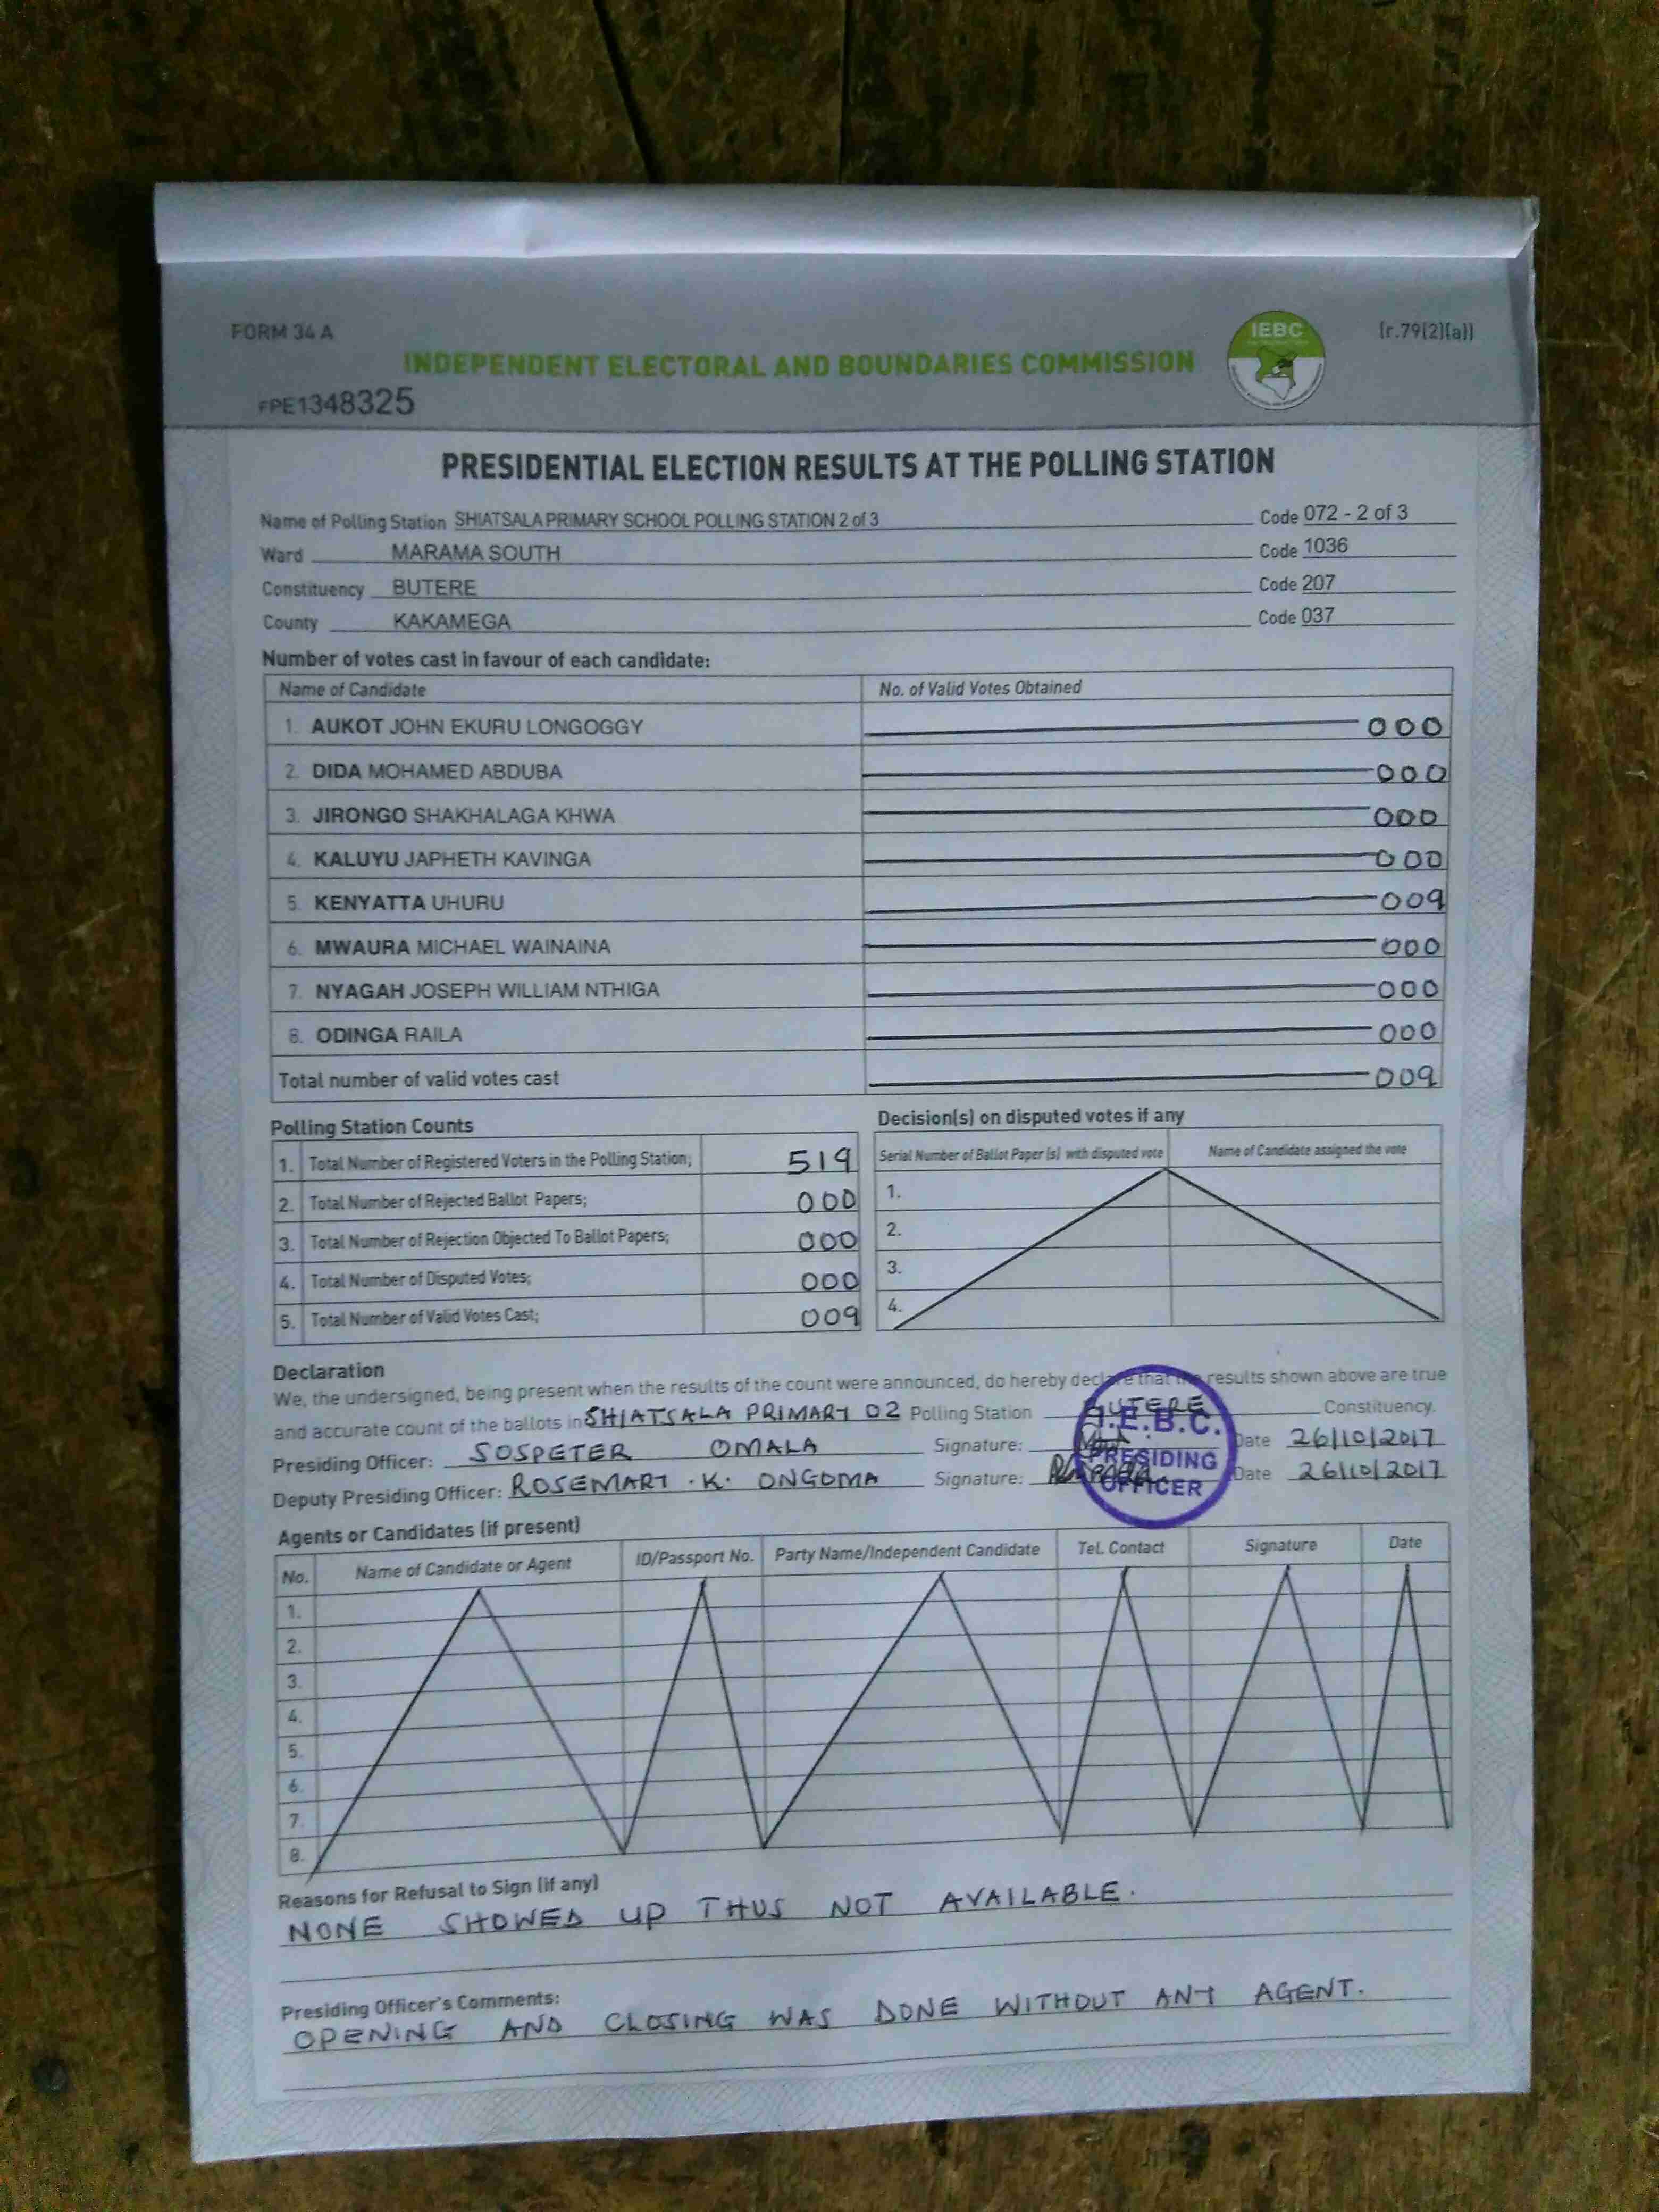 FORM 34 A
IEBC
(r.79(2)(a))
INDEPENDENT ELECTORAL AND BOUNDARIES COMMISSION
FPE1348325
PRESIDENTIAL ELECTION RESULTS AT THE POLLING STATION
Name of Polling Station SHIATSALA PRIMARY SCHOOL POLLING STATION 2 of 3 Code 072 - 2 of 3
Ward MARAMA SOUTH Code 1036
Constituency BUTERE Code 207
County KAKAMEGA Code 037
Number of votes cast in favour of each candidate:
Name of Candidate No. of Valid Votes Obtained
1. AUKOT JOHN EKURU LONGOGGY 000
2. DIDA MOHAMED ABDUBA 000
3. JIRONGO SHAKHALAGA KHWA 000
4. KALUYU JAPHETH KAVINGA 000
5. KENYATTA UHURU 009
6. MWAURA MICHAEL WAINAINA 000
7. NYAGAH JOSEPH WILLIAM NTHIGA 000
8. ODINGA RAILA 000
Total number of valid votes cast 009
Polling Station Counts
1. Total Number of Registered Voters in the Polling Station; 519
2. Total Number of Rejected Ballot Papers; 000
3. Total Number of Rejection Objected To Ballot Papers; 000
4. Total Number of Disputed Votes; 000
5. Total Number of Valid Votes Cast; 009
Decision(s) on disputed votes if any
Serial Number of Ballot Paper (s) with disputed vote Name of Candidate assigned the vote
1.
2.
3.
4.
Declaration
We, the undersigned, being present when the results of the count were announced, do hereby declare that the results shown above are true
and accurate count of the ballots in SHIATSALA PRIMARY 02 Polling Station BUTERE Constituency.
Presiding Officer: SOSPETER OMALA Signature: Date 26/10/2017
Deputy Presiding Officer: ROSEMARY .K. ONGOMA Signature: Date 26/10/2017
I.E.B.C.
PRESIDING
OFFICER
Agents or Candidates (if present)
No. Name of Candidate or Agent ID/Passport No. Party Name/Independent Candidate Tel. Contact Signature Date
1.
2.
3.
4.
5.
6.
7.
8.
Reasons for Refusal to Sign (if any)
NONE SHOWED UP THUS NOT AVAILABLE.
Presiding Officer's Comments:
OPENING AND CLOSING WAS DONE WITHOUT ANY AGENT.